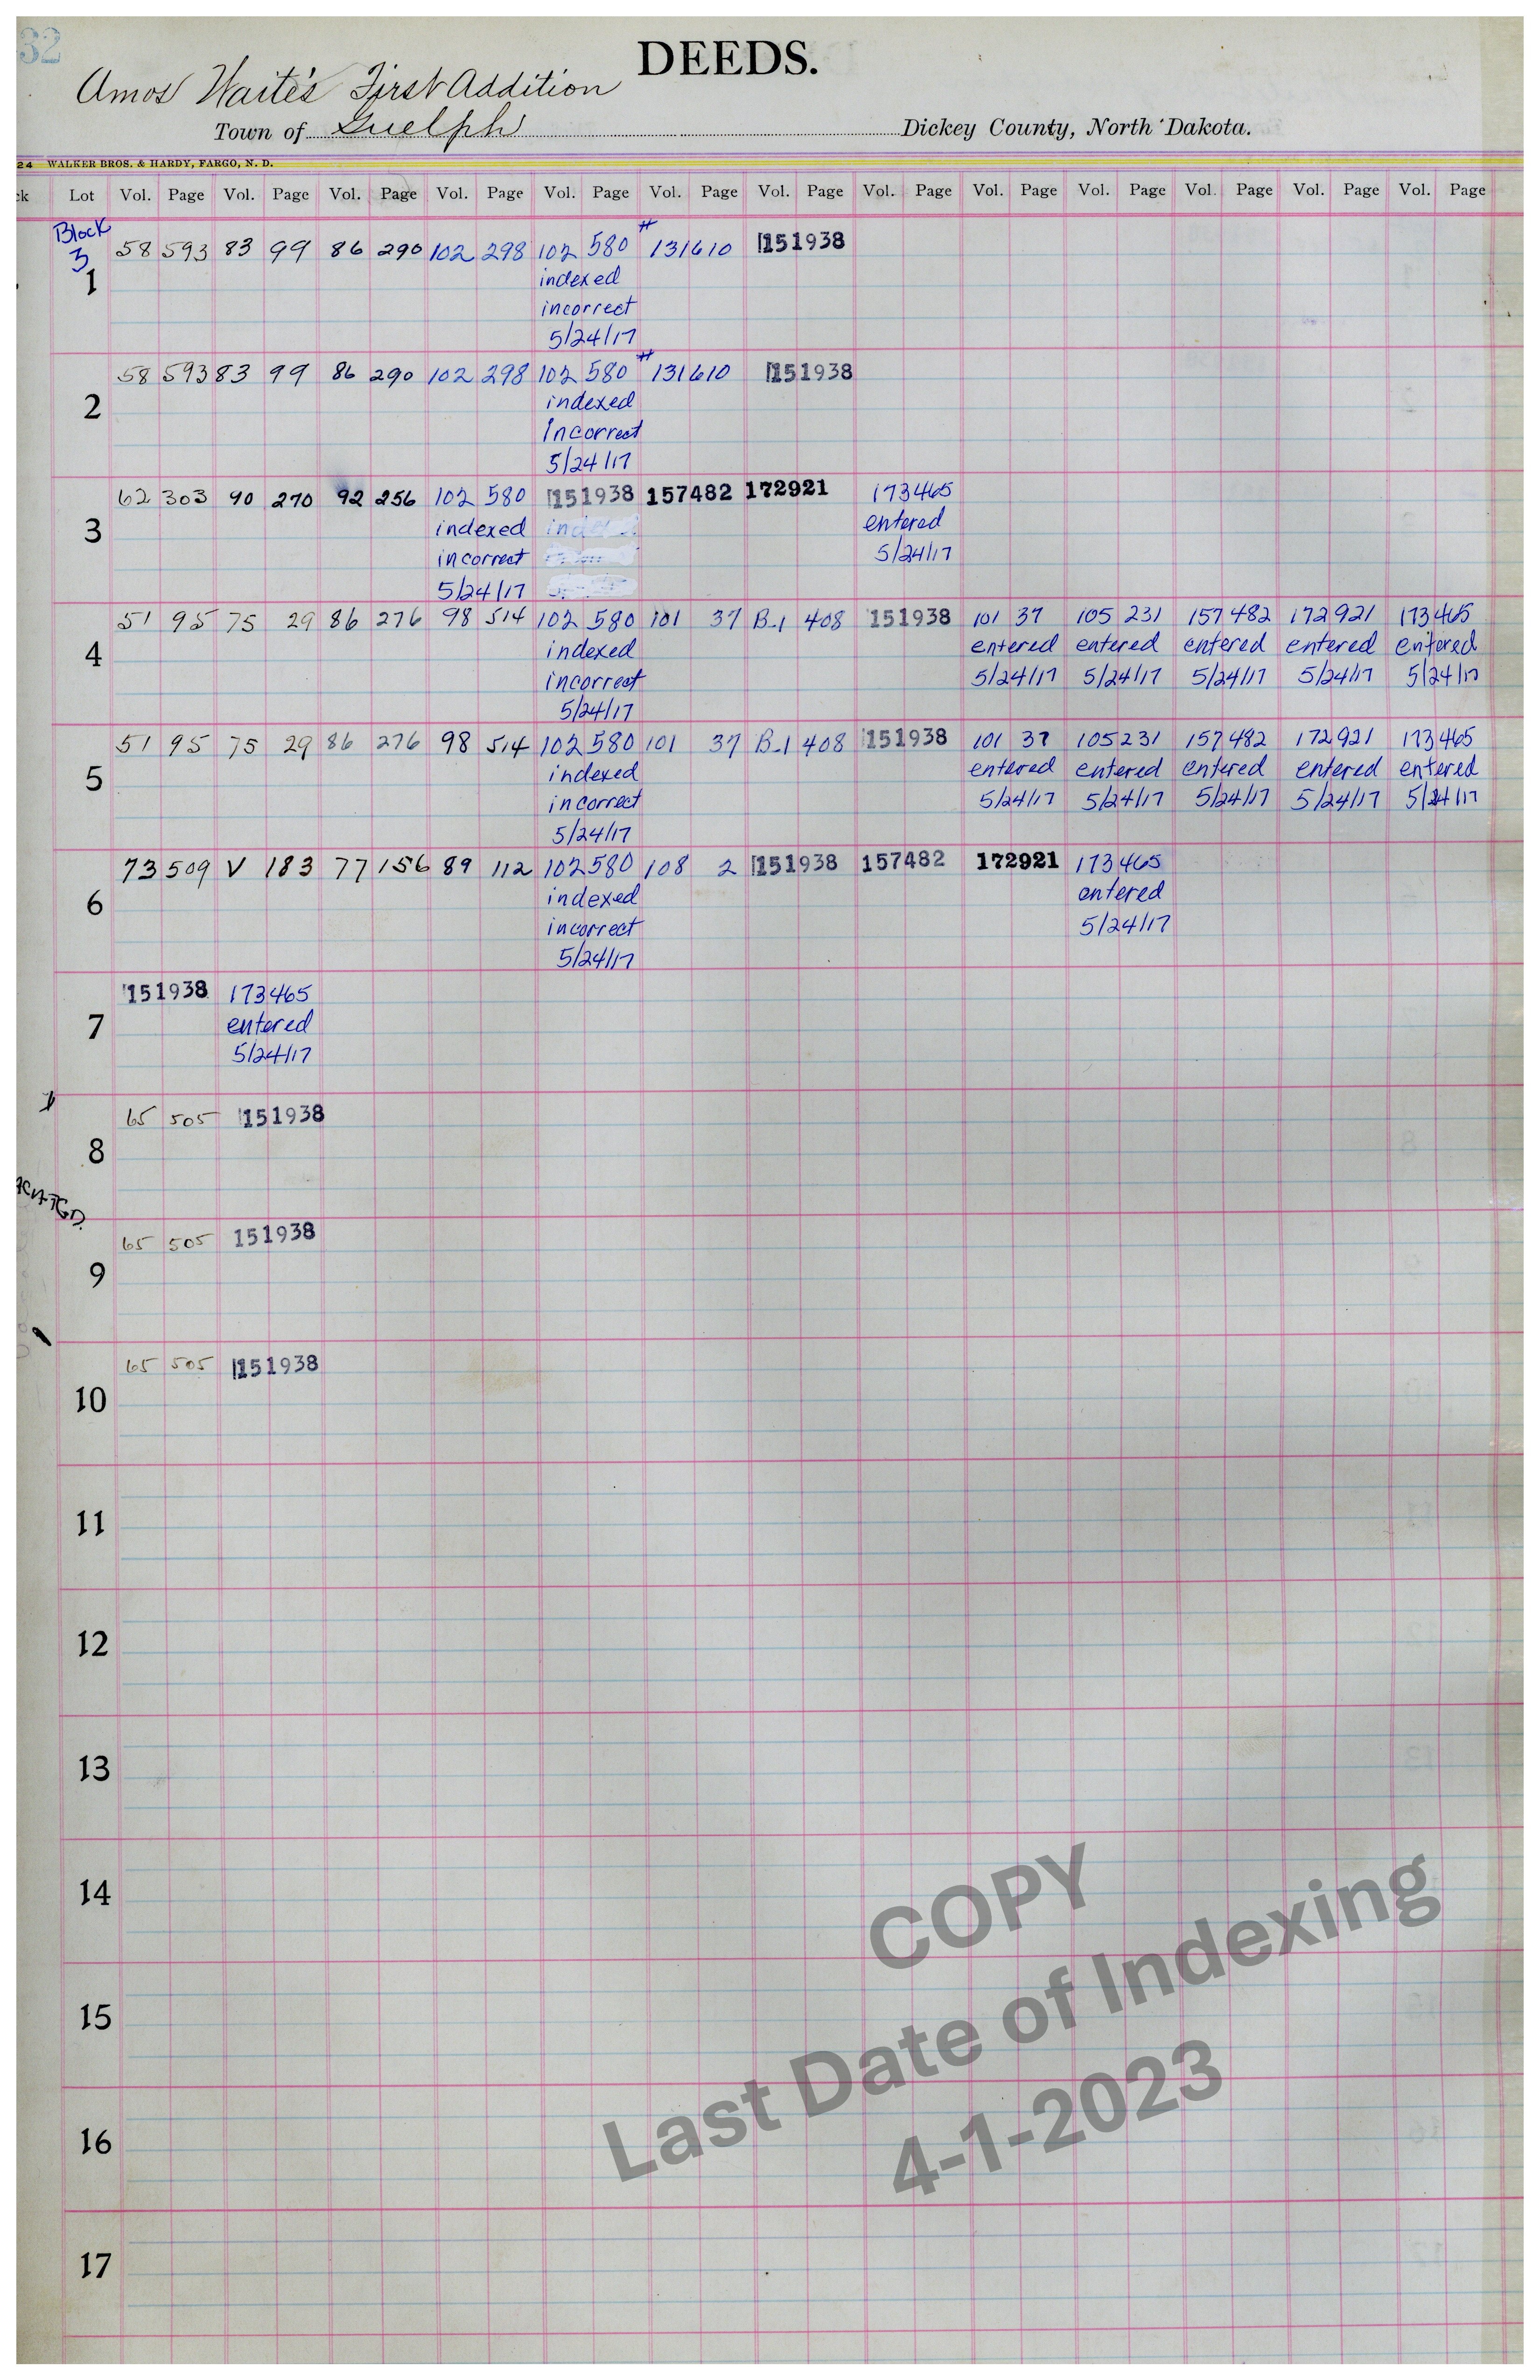 32
DEEDS.
Amos Waite's First Addition
Town of Guelph Dickey County, North Dakota.
24 WALKER BROS. & HARDY, FARGO, N. D.
ck Lot Vol. Page Vol. Page Vol. Page Vol. Page Vol. Page Vol. Page Vol. Page Vol. Page Vol. Page Vol. Page Vol. Page Vol. Page Vol. Page
Block
3
1 58 593 83 99 86 290 102 298 102 580 # 131610 151938
indexed
incorrect
5/24/17
2 58 593 83 99 86 290 102 298 102 580 # 131610 151938
indexed
incorrect
5/24/17
3 62 303 90 270 92 256 102 580 151938 157482 172921 173465
indexed entered
incorrect 5/24/17
5/24/17
4 51 95 75 29 86 276 98 514 102 580 101 37 B-1 408 151938 101 37 105 231 157482 172921 173465
indexed entered entered entered entered entered
incorrect 5/24/17 5/24/17 5/24/17 5/24/17 5/24/17
5/24/17
5 51 95 75 29 86 276 98 514 102 580 101 37 B-1 408 151938 101 37 105 231 157482 172921 173465
indexed entered entered entered entered entered
incorrect 5/24/17 5/24/17 5/24/17 5/24/17 5/24/17
5/24/17
6 73 509 V 183 77 156 89 112 102 580 108 2 151938 157482 172921 173465
indexed entered
incorrect 5/24/17
5/24/17
7 151938 173465
entered
5/24/17
8 65 505 151938
9 65 505 151938
10 65 505 151938
11
12
13
14
15
16
17
COPY
Last Date of Indexing
4-1-2023